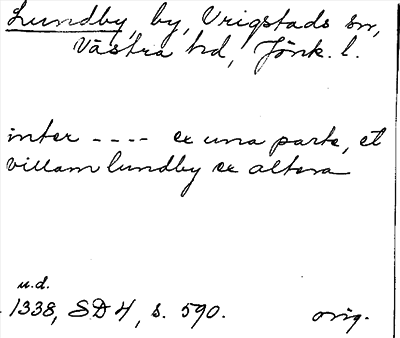 Lundby, by, Vrigstads sn,
Västra hd, Jönk. l.
inter ---- ex una parte, et
villam lundby ex altera
u.d.
1338, SD 4, s. 590. orig.